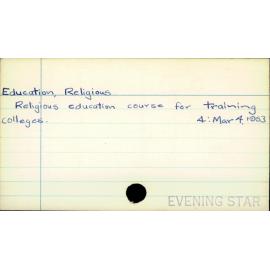 Education, Religious
Religious education course for training
colleges. 4: Mar 4, 1963
EVENING STAR